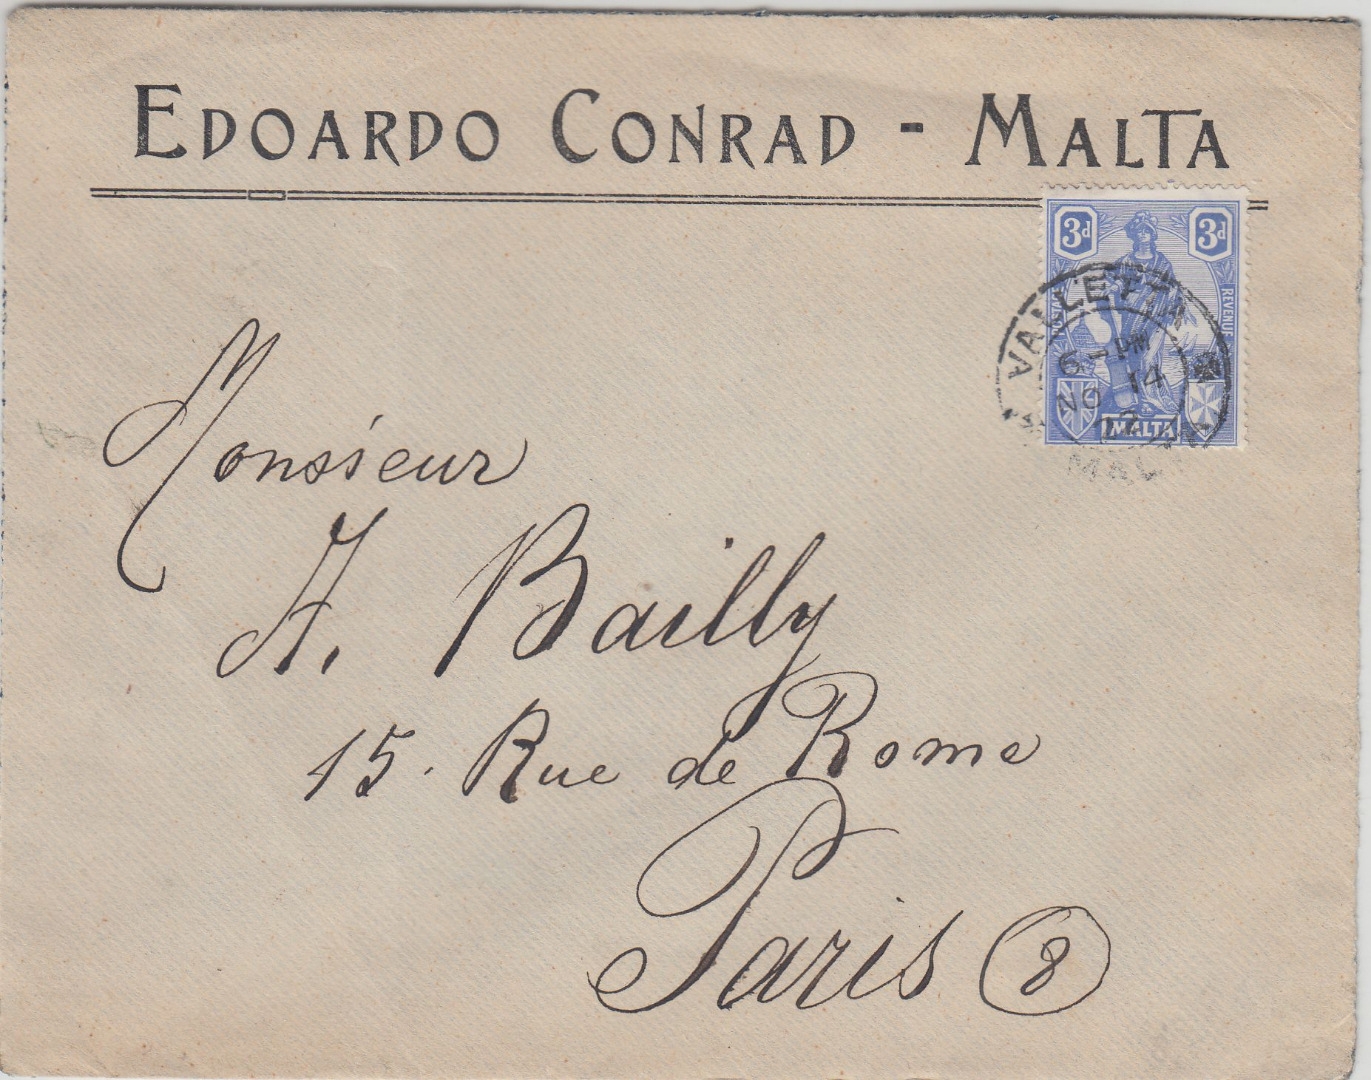 EDOARDO CONRAD - MALTA
3d 3d
POSTAGE REVENUE
MALTA
VALLETTA
6-PM
NO 14
Monsieur
A. Bailly
15. Rue de Rome
Paris (8)